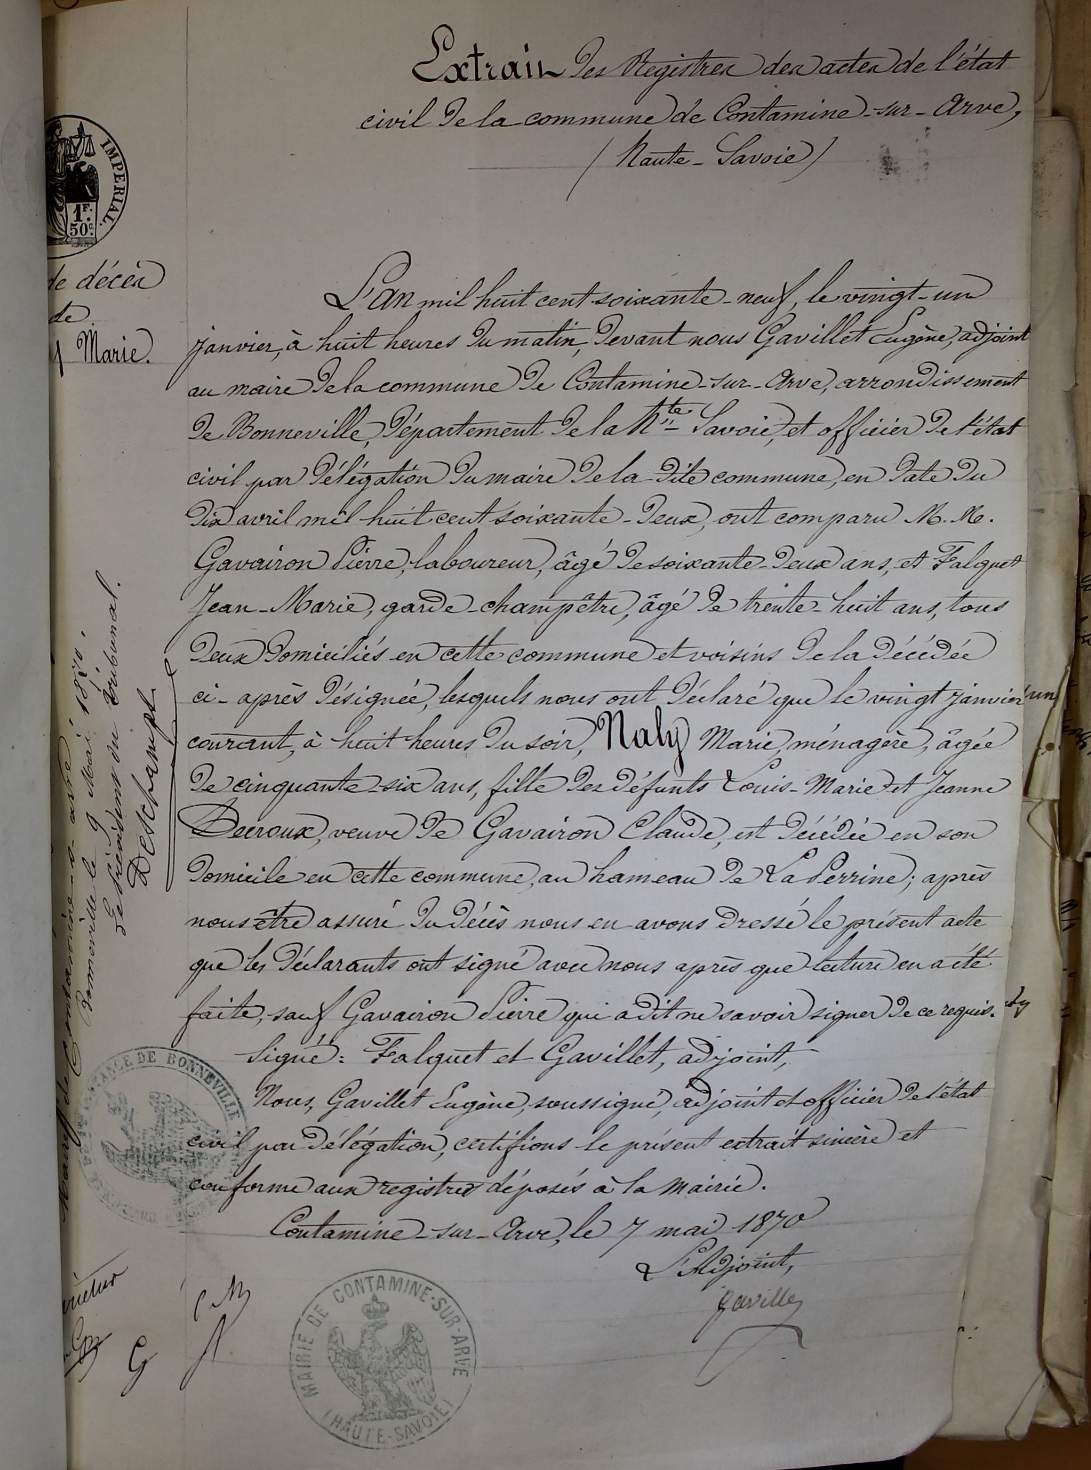 Extrait des Registres des actes de l'état
civil de la commune de Contamine-sur-Arve,
(Haute-Savoie)
IMPERIAL.
1F.
50c
de décès
de
Marie.
L'an mil huit cent soixante-neuf, le vingt-un
janvier, à huit heures du matin, devant nous Gavillet Eugène, adjoint
au maire de la commune de Contamine-sur-Arve, arrondissement
de Bonneville, Département de la Hte Savoie, et officier de l'état
civil par délégation du maire de la dite commune, en date du
dix avril mil huit cent soixante-deux, ont comparu M. M.
Gavairon Pierre, laboureur, âgé de soixante-deux ans, et Falquet
Jean-Marie, garde-champêtre, âgé de trente-huit ans, tous
deux domiciliés en cette commune et voisins de la décédée
ci-après désignée, lesquels nous ont déclaré que le vingt janvier
courant, à huit heures du soir, Naly Marie, ménagère, âgée
de cinquante-six ans, fille des défunts Louis-Marie et Jeanne
Decroux, veuve de Gavairon Claude, est décédée en son
domicile en cette commune, au hameau de La Perrine; après
nous être assuré du décès nous en avons dressé le présent acte
que les déclarants ont signé avec nous après que lecture en a été
faite, sauf Gavairon Pierre qui a dit ne savoir signer de ce requis.
Signé: Falquet et Gavillet, adjoint,
Nous, Gavillet Eugène, soussigné, adjoint et officier de l'état
civil par délégation, certifions le présent extrait sincère et
conforme aux registres déposés à la mairie.
Contamine-sur-Arve, le 7 mai 1870
L'Adjoint,
Gavillet
Bonneville le 9 Mai 1870.
Le Président du Tribunal.
Deschamps
DE BONNEVILLE
MAIRIE DE CONTAMINE-SUR-ARVE
(HAUTE-SAVOIE)